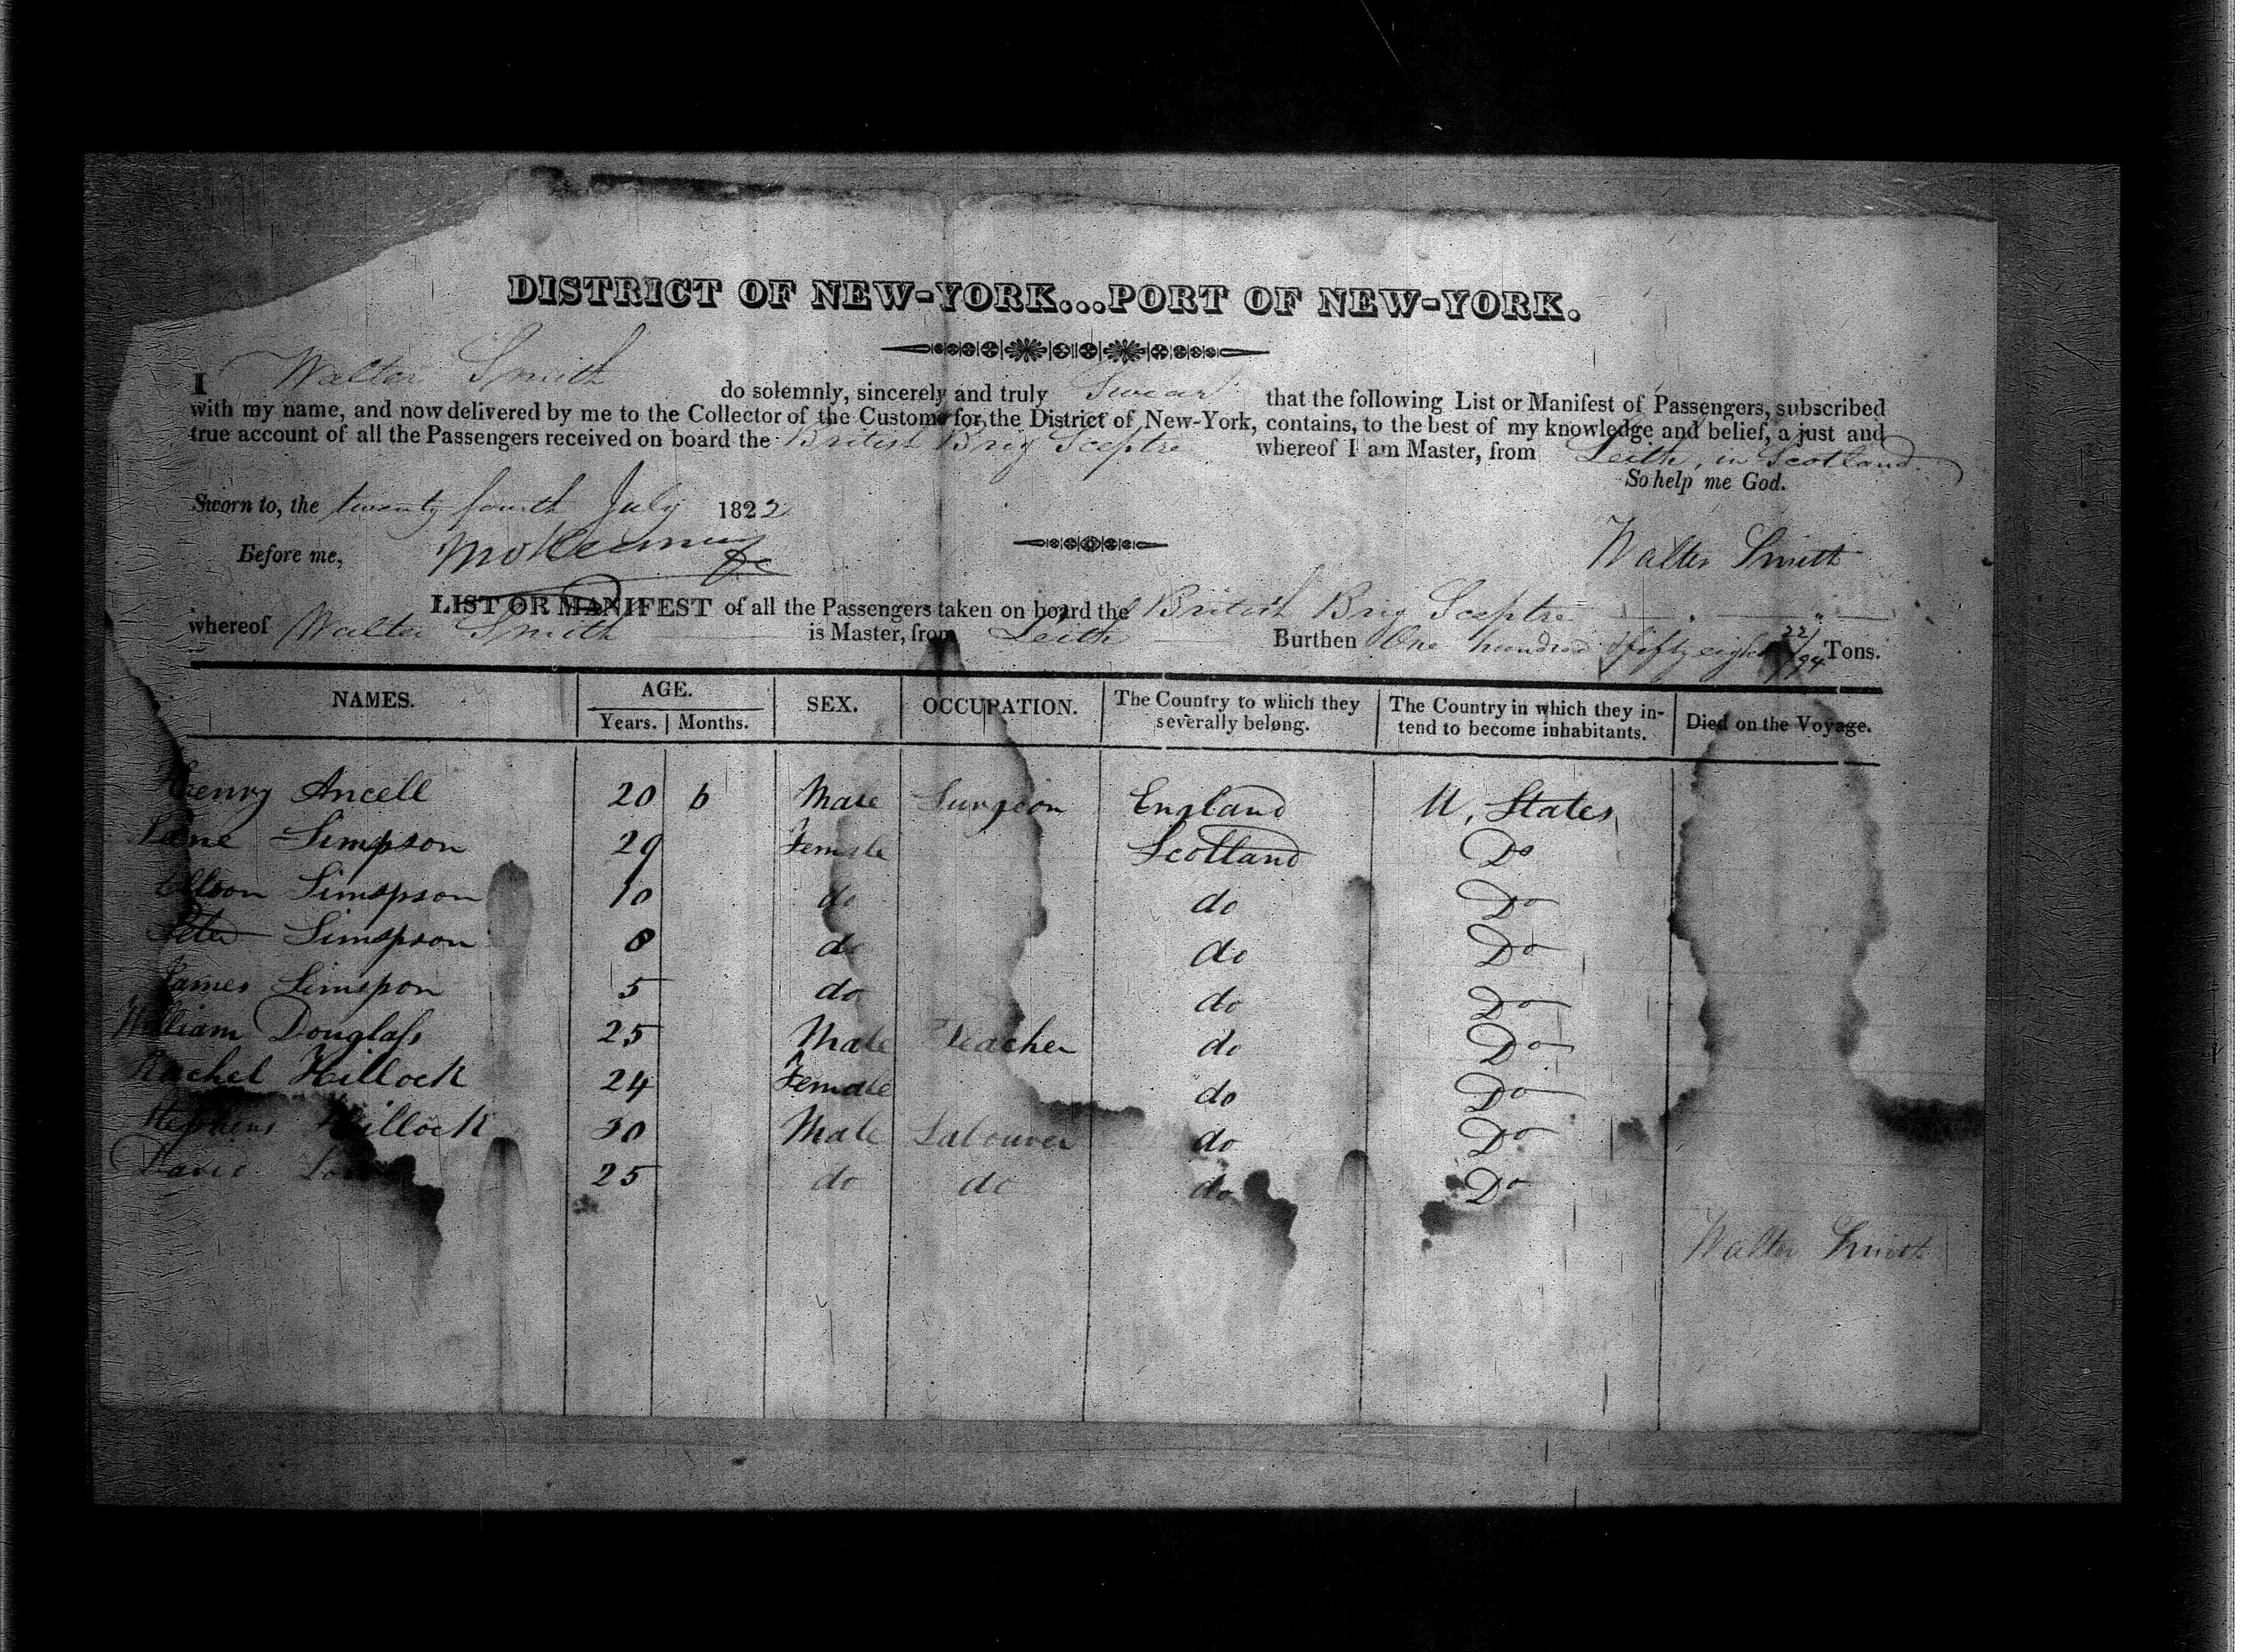 DISTRICT OF NEW-YORK...PORT OF NEW-YORK.
I Walter Smith do solemnly, sincerely and truly Swear that the following List or Manifest of Passengers, subscribed
with my name, and now delivered by me to the Collector of the Customs for the District of New-York, contains, to the best of my knowledge and belief, a just and
true account of all the Passengers received on board the British Brig Sceptre whereof I am Master, from Leith, in Scotland.
So help me God.
Sworn to, the twenty fourth July 1822
Before me,
Walter Smith
LIST OR MANIFEST of all the Passengers taken on board the British Brig Sceptre
whereof Walter Smith is Master, from Leith Burthen One hundred fifty eight 22/94 Tons.
NAMES. AGE. SEX. OCCUPATION. The Country to which they severally belong. The Country in which they intend to become inhabitants. Died on the Voyage.
Years. Months.
Henry Ancell 20 6 Male Surgeon England U, States
Jane Simpson 29 Female Scotland Do
Simspson 10 do do Do
Peter Simspson 8 do do Do
James Simspon 5 do do Do
William Douglass 25 Male Teacher do Do
Rachel Hillock 24 Female do Do
Stephens Hillock 30 Male Labourer do Do
David 25 do do do Do
Walter Smith